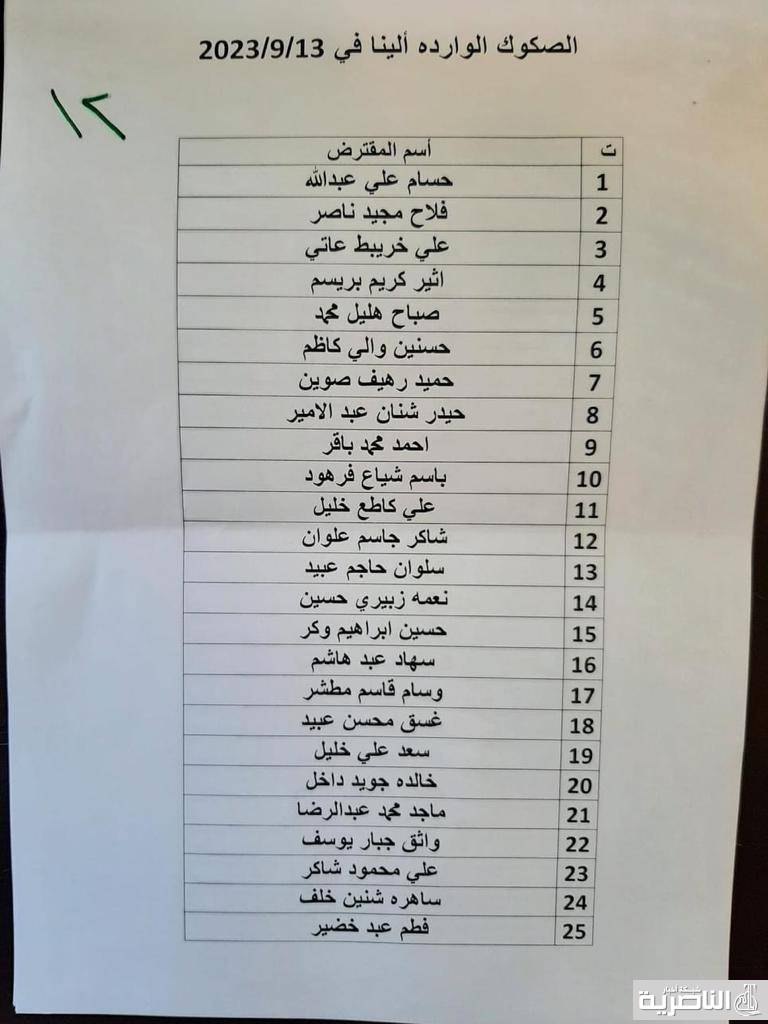 الصكوك الوارده ألينا في 2023/9/13
١٢
ت أسم المقترض
1 حسام علي عبدالله
2 فلاح مجيد ناصر
3 علي خريبط عاتي
4 اثير كريم بريسم
5 صباح هليل محمد
6 حسنين والي كاظم
7 حميد رهيف صوين
8 حيدر شنان عبد الامير
9 احمد محمد باقر
10 باسم شياع فرهود
11 علي كاطع خليل
12 شاكر جاسم علوان
13 سلوان حاجم عبيد
14 نعمه زبيري حسين
15 حسين ابراهيم وكر
16 سهاد عبد هاشم
17 وسام قاسم مطشر
18 غسق محسن عبيد
19 سعد علي خليل
20 خالده جويد داخل
21 ماجد محمد عبدالرضا
22 واثق جبار يوسف
23 علي محمود شاكر
24 ساهره شنين خلف
25 فطم عبد خضير
شبكة أخبار
الناصرية